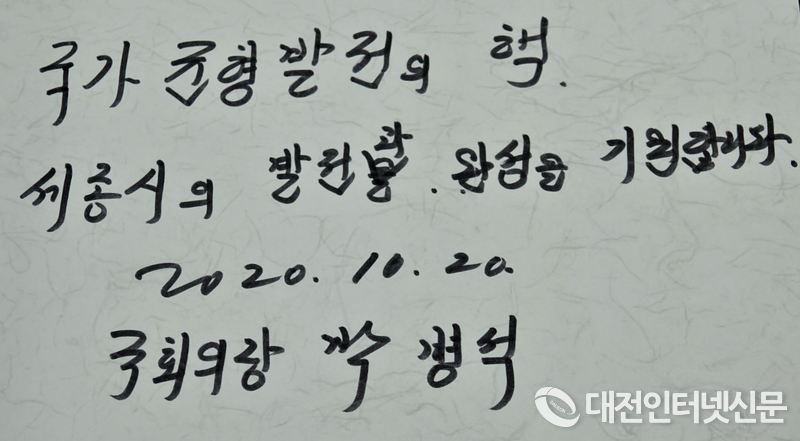 국가 균형발전의 핵.
세종시의 발전과 완성을 기원합니다.
2020. 10. 20.
국회의장 박병석
대전인터넷신문